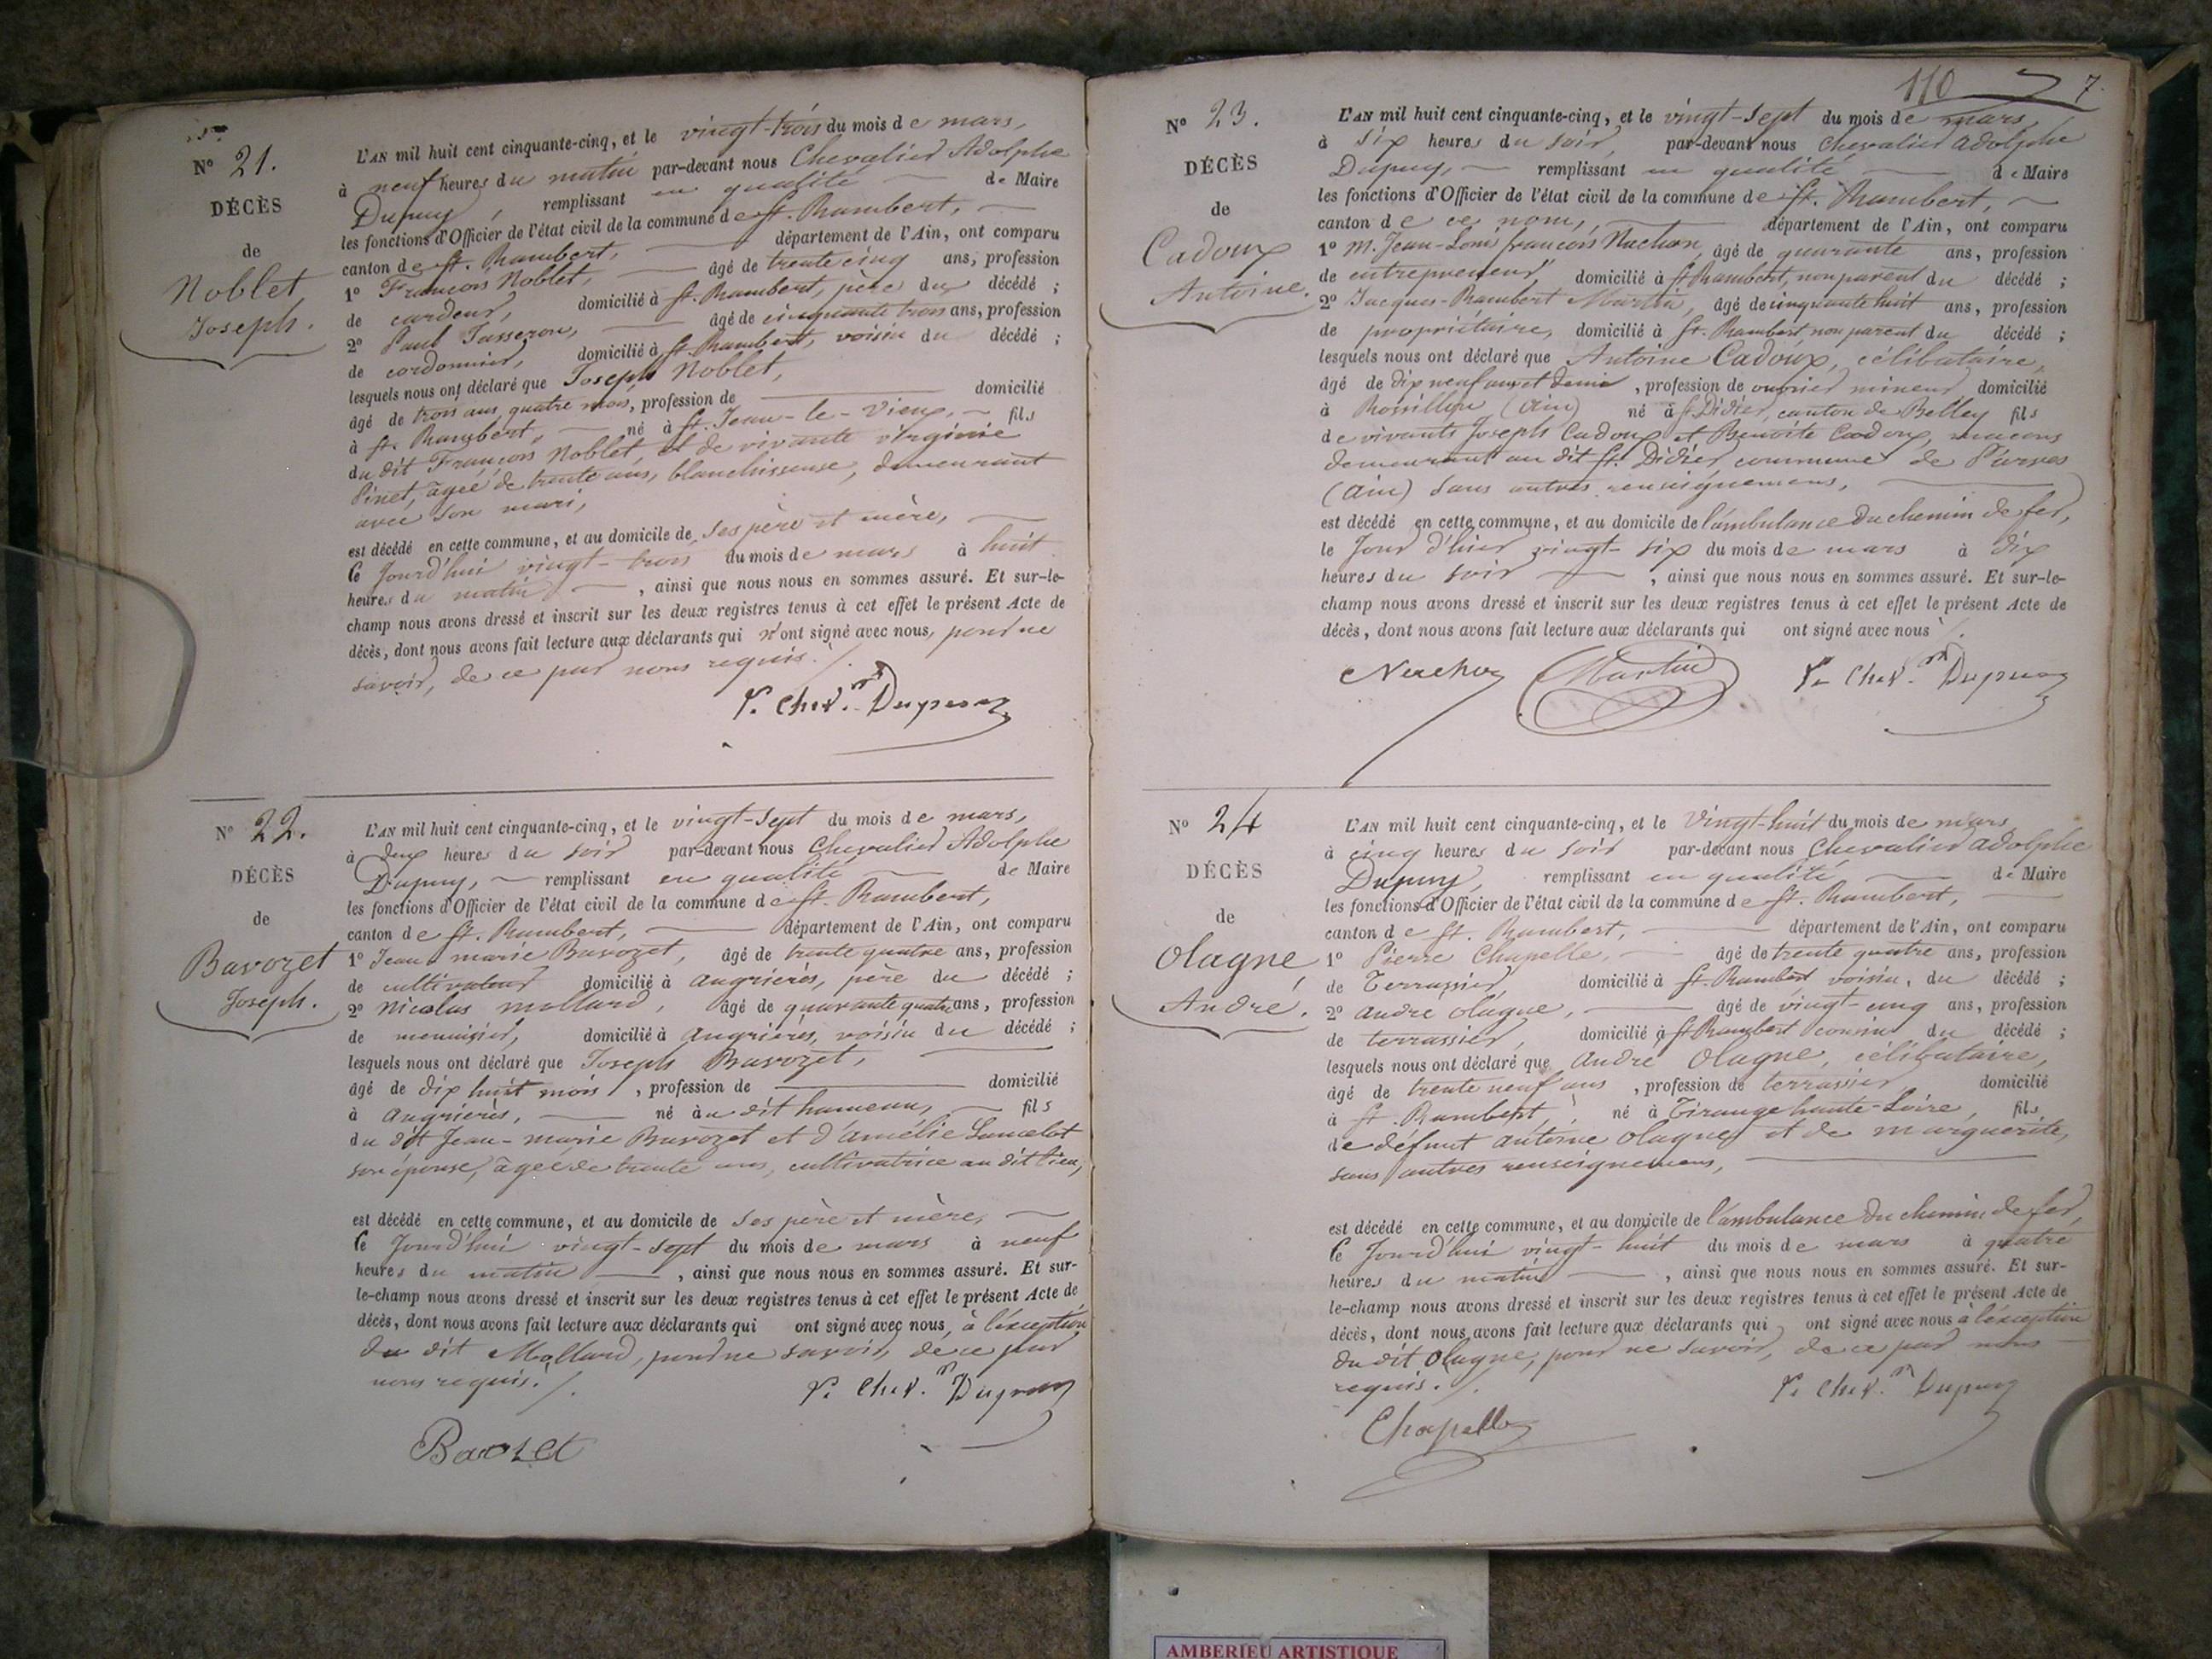 N° 21.
DÉCÈS
de
Noblet
Joseph.
L'AN mil huit cent cinquante-cinq, et le vingt-trois du mois de mars,
à neuf heures du matin par-devant nous Chevalier Adolphe
Dupuy, remplissant en qualité de Maire
les fonctions d'Officier de l'état civil de la commune de St. Rambert,
canton de St. Rambert, département de l'Ain, ont comparu
1° François Noblet, âgé de trente cinq ans, profession
de cardeur, domicilié à St. Rambert, père du décédé ;
2° Paul Tasseron, âgé de cinquante trois ans, profession
de cordonnier, domicilié à St. Rambert, voisin du décédé ;
lesquels nous ont déclaré que Joseph Noblet,
âgé de trois ans quatre mois, profession de domicilié
à St. Rambert, né à St. Jean-le-Vieux, fils
du dit François Noblet, et de vivante virginie
Pinet, âgée de trente ans, blanchisseuse, demeurant
avec son mari,
est décédé en cette commune, et au domicile de ses père et mère,
le jourd'hui vingt-trois du mois de mars à huit
heures du matin , ainsi que nous nous en sommes assuré. Et sur-le-
champ nous avons dressé et inscrit sur les deux registres tenus à cet effet le présent Acte de
décès, dont nous avons fait lecture aux déclarants qui n'ont signé avec nous, pour ne
savoir, de ce par nous requis./.
Chev. Dupuy
N° 22.
DÉCÈS
de
Bavozet
Joseph.
L'AN mil huit cent cinquante-cinq, et le vingt-sept du mois de mars,
à deux heures du soir par-devant nous Chevalier Adolphe
Dupuy, remplissant en qualité de Maire
les fonctions d'Officier de l'état civil de la commune de St. Rambert,
canton de St. Rambert, département de l'Ain, ont comparu
1° Jean marie Bavozet, âgé de trente quatre ans, profession
de cultivateur domicilié à angrières, père du décédé ;
2° Nicolas mollard, âgé de quarante quatre ans, profession
de menuisier, domicilié à angrières, voisin du décédé ;
lesquels nous ont déclaré que Joseph Bavozet,
âgé de dix huit mois , profession de domicilié
à angrières, né au dit hameau, fils
du dit Jean-marie Bavozet et d'amélie Lancelot
son épouse, âgée de trente ans, cultivatrice au dit lieu,
est décédé en cette commune, et au domicile de ses père et mère,
le jourd'hui vingt-sept du mois de mars à neuf
heures du matin , ainsi que nous nous en sommes assuré. Et sur-
le-champ nous avons dressé et inscrit sur les deux registres tenus à cet effet le présent Acte de
décès, dont nous avons fait lecture aux déclarants qui ont signé avec nous, à l'exception
du dit Mollard, pour ne savoir, de ce par
nous requis./.
Chev. Dupuy
Bavozet
110 7
N° 23.
DÉCÈS
de
Cadoux
Antoine.
L'AN mil huit cent cinquante-cinq, et le vingt-sept du mois de mars
à six heures du soir, par-devant nous Chevalier adolphe
Dupuy, remplissant en qualité de Maire
les fonctions d'Officier de l'état civil de la commune de St. Rambert,
canton de ce nom, département de l'Ain, ont comparu
1° M. Jean-Louis françois Nuchon, âgé de quarante ans, profession
de entrepreneur, domicilié à St Rambert, non parent du décédé ;
2° Jacques-Rambert Martin, âgé de cinquante huit ans, profession
de propriétaire, domicilié à St. Rambert non parent du décédé ;
lesquels nous ont déclaré que Antoine Cadoux, célibataire,
âgé de dix neuf ans et demi , profession de ouvrier mineur domicilié
à Rossillon (ain) né à St Didier, canton de Belley fils
de vivants Joseph Cadoux et Benoite Cadoux, maçons
demeurant au dit St. Didier, commune de Parves
(ain) sans autres renseignemens,
est décédé en cette commune, et au domicile de l'ambulance du chemin de fer,
le jour d'hier vingt-six du mois de mars à dix
heures du soir , ainsi que nous nous en sommes assuré. Et sur-le-
champ nous avons dressé et inscrit sur les deux registres tenus à cet effet le présent Acte de
décès, dont nous avons fait lecture aux déclarants qui ont signé avec nous /.
Martin Chev. Dupuy
N° 24
DÉCÈS
de
Olagne,
André.
L'AN mil huit cent cinquante-cinq, et le vingt-huit du mois de mars
à cinq heures du soir par-devant nous Chevalier adolphe
Dupuy, remplissant en qualité de Maire
les fonctions d'Officier de l'état civil de la commune de St. Rambert,
canton de St. Rambert, département de l'Ain, ont comparu
1° Pierre Chapelle, âgé de trente quatre ans, profession
de Terrassier, domicilié à St. Rambert voisin, du décédé ;
2° andré olagne, âgé de vingt-cinq ans, profession
de terrassier, domicilié à St Rambert cousin du décédé ;
lesquels nous ont déclaré que andré Olagne, célibataire,
âgé de trente neuf ans , profession de terrassier domicilié
à St. Rambert, né à Tirange haute-Loire, fils
de défunt antoine olagne et de marguerite,
sans autres renseignemens,
est décédé en cette commune, et au domicile de l'ambulance du chemin de fer,
le jourd'hui vingt-huit du mois de mars à quatre
heures du matin , ainsi que nous nous en sommes assuré. Et sur-
le-champ nous avons dressé et inscrit sur les deux registres tenus à cet effet le présent Acte de
décès, dont nous avons fait lecture aux déclarants qui ont signé avec nous à l'exception
du dit olagne, pour ne savoir, de ce par nous
requis./.
Chev. Dupuy
Chapelle
AMBERIEU ARTISTIQUE